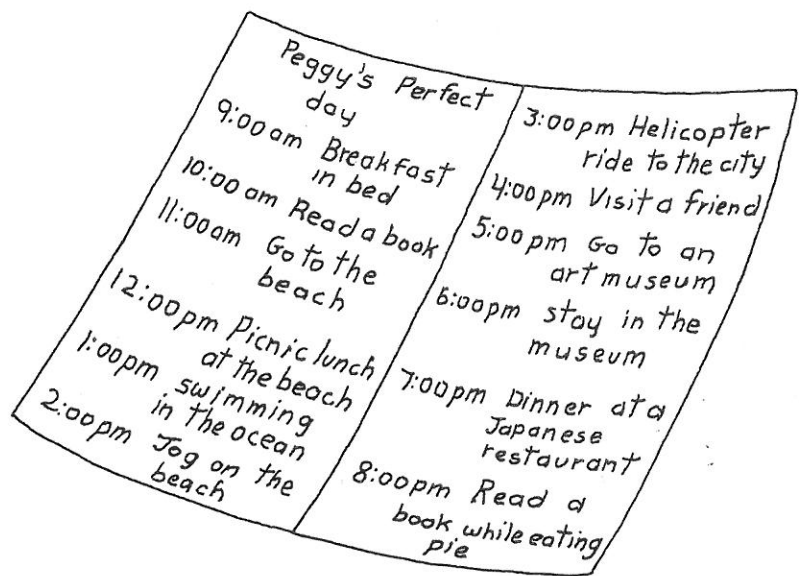 Peggy's Perfect
day
9:00 am Breakfast
in bed
10:00 am Read a book
11:00am Go to the
beach
12:00pm Picnic lunch
at the beach
1:00pm swimming
in the ocean
2:00pm Jog on the
beach
3:00pm Helicopter
ride to the city
4:00pm Visit a friend
5:00 pm Go to an
art museum
6:00pm stay in the
museum
7:00pm Dinner at a
Japanese
restaurant
8:00pm Read a
book while eating
pie